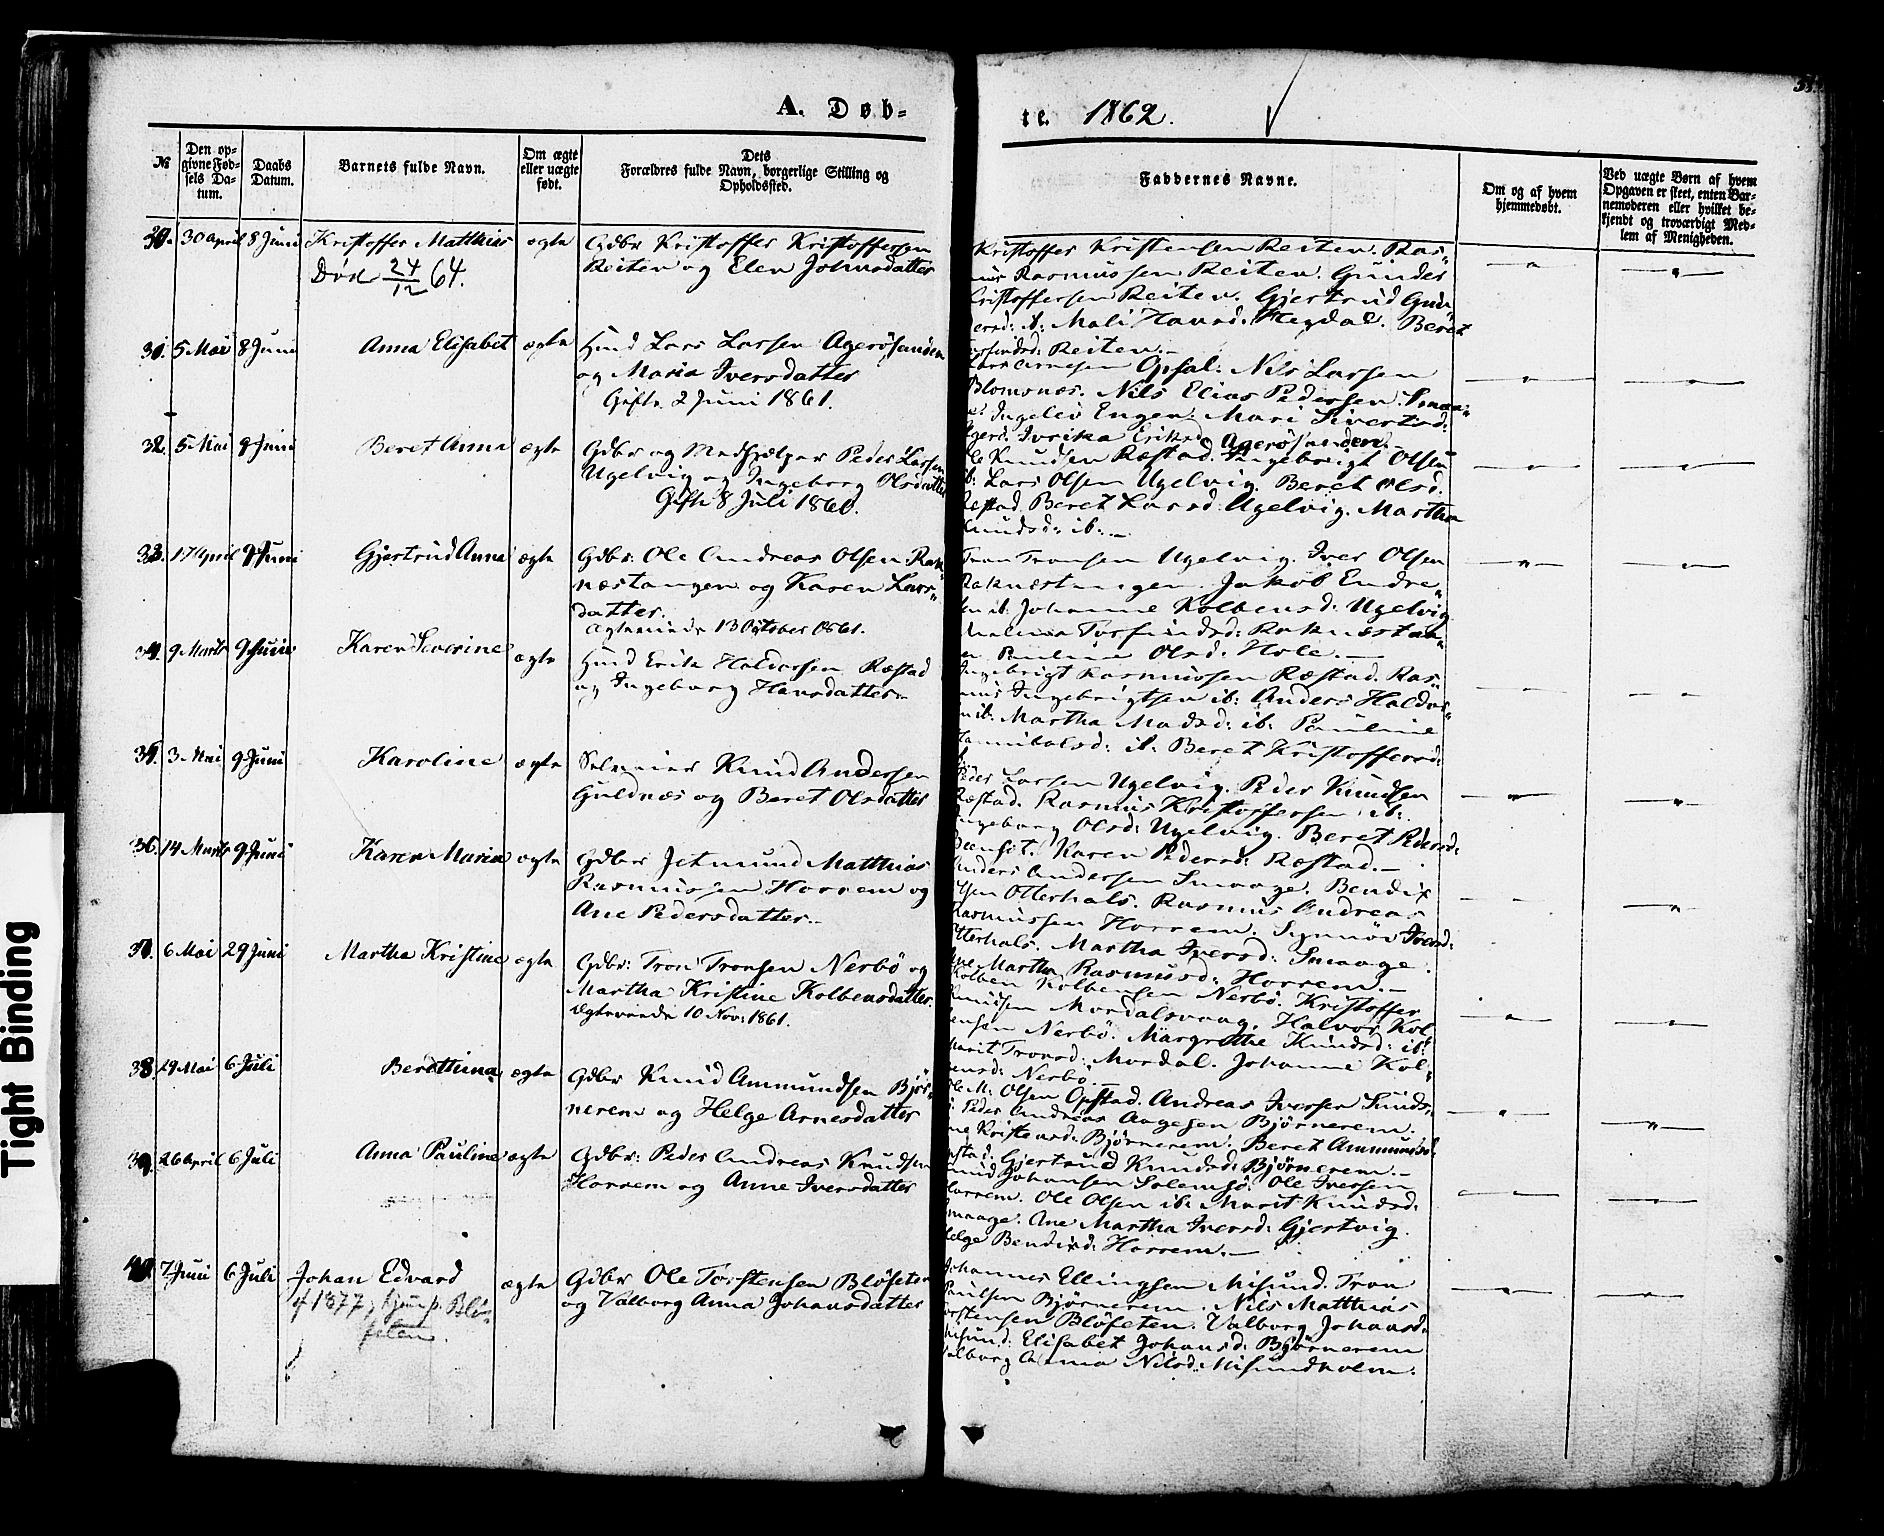 A. Døb-
te. 1862.
№
Den op-
givne Fød-
sels Da-
tum.
Daabs
Datum.
Barnets fulde Navn.
Om ægte
eller uægte
født.
Dets
Forældres fulde Navn, borgerlige Stilling og
Opholdssted.
Faddernes Navne.
Om og af hvem
hjemmedøbt.
Ved uægte Børn af hvem
Opgaven er skeet, enten Bar-
nemoderen eller hvilket be-
kjendt og troværdigt Med-
lem af Menigheden.
30. 30 April 8 Juni Kristoffer Matthias ægte Gdbr Kristoffer Kristoffersen
Død 24/12 64. Reiten og Elen Johnsdatter
Kristoffer Kristensen Reiten. Ras-
mus Rasmussen Reiten. Gunder
Kristoffersen Reiten. Gjertrud Gun-
dersd: ib: Mali Hansd. Hegdal. Beret
Reiten.
31. 5 Mai 8 Juni Anna Elisabet ægte Hmd Lars Larsen Agerøsanden
og Maria Iversdatter
Gifte 2 Juni 1861.
Lars Arnesen Opsal: Nils Larsen
Blomsnæs. Nils Elias Pedersen
Ingelev Engen. Mari Sivertsd:
Eriksd: Agerøsanden.
32. 5 Mai 9 Juni Beret Anna ægte Gdbr og Medhjælper Peder Larsen
Ugelvig og Ingeborg Olsdatter
Gifte 8 Juli 1860.
Ole Knudsen Ræstad. Ingebrigt Olsen
ib: Lars Olsen Ugelvig. Beret Olsd.
Ræstad. Beret Larsd: Ugelvig. Martha
Knudsd: ib:
33. 17 April 9 Juni Gjertrud Anna ægte Gdbr: Ole Andreas Olsen Rak-
næstangen og Karen Lars-
datter.
Ægteviede 13 October 1861.
Tron Tronsen Ugelvig. Iver Olsen
Raknæstangen. Jakob Endre-
sen ib. Johanne Kolbensd: Ugelvig
Malena Torfindsd: Raknæstan-
gen Pauline Olsd: Hole.
34. 9 Marts 9 Juni Karen Severine ægte Hmd Erik Haldorsen Ræstad
og Ingeborg Hansdatter.
Ingebrigt Rasmussen Ræstad. Ras-
mus Ingebrigtsen ib: Anders Haldor-
sen ib: Martha Madsd: ib: Pauline
Hannibalsd: ib: Beret Kristoffersd:
35. 3 Mai 9 Juni Karoline ægte Selveier Knud Andersen
Guldnæs og Beret Olsdatter
Peder Larsen Ugelvig. Peder Knudsen
Ræstad. Rasmus Kristoffersen ib:
Ingeborg Olsd: Ugelvig. Beret Pedersd:
Karen Pedersd: Ræstad.
36. 14 Marts 9 Juni Karen Maria ægte Gdbr Jetmund Matthias
Rasmussen Horrem og
Ane Pedersdatter.
Anders Andersen Smaage. Bendix
Olsen Otterhals. Rasmus Andreas
Rasmussen Horrem. Synnøv Iversd:
Otterhals. Martha Iversd: Smaage.
Ane Martha Rasmusd: Horrem.
37. 6 Mai 29 Juni Martha Kristine ægte Gdbr: Tron Tronsen Nerbø og
Martha Kristine Kolbensdatter.
Ægteviede 10 Nov: 1861.
Kolben Kolbensen Nerbø. Kristoffer
Knudsen Mordalsvaag. Halvor Kol-
bensen Nerbø. Margrethe Knudsd: ib:
Marit Tronsd: Mordal. Johanne Kol-
bensd: Nerbø.
38. 29 Mai 6 Juli Berethina ægte Gdbr Knud Ammundsen Bjør-
nerem og Helge Arnesdatter
Ole M: Olsen Opstad. Andreas Iversen Sunds-
Peder Andreas Aagesen Bjørnerem.
Ane Kristensd: Bjørnerem. Beret Ammundsd:
Opstad. Gjertrud Knudsd: Bjørnerem.
39. 26 April 6 Juli Anna Pauline ægte Gdbr: Peder Andreas Knudsen
Horrem og Anne Iversdatter
Knud Johansen Solemsø. Ole Iversen
Horrem. Ole Olsen ib: Marit Knudsd.
Smaage. Ane Martha Iversd: Gjertvig.
Helge Bendixd: Horrem.
40. 7 Juni 6 Juli Johan Edvard ægte Gdbr Ole Torstensen Bløseten
og Valborg Anna Johansdatter
1877, hjem p. Blø-
seten.
Johannes Ellingsen Misund. Tron
Paulsen Bjørnerem. Nils Matthias
Torstensen Bløseten. Valborg Johansd.
Misund. Elisabet Johansd: Bjørnerem
Valborg Anna Nilsd: Misundholm.
Tight Binding